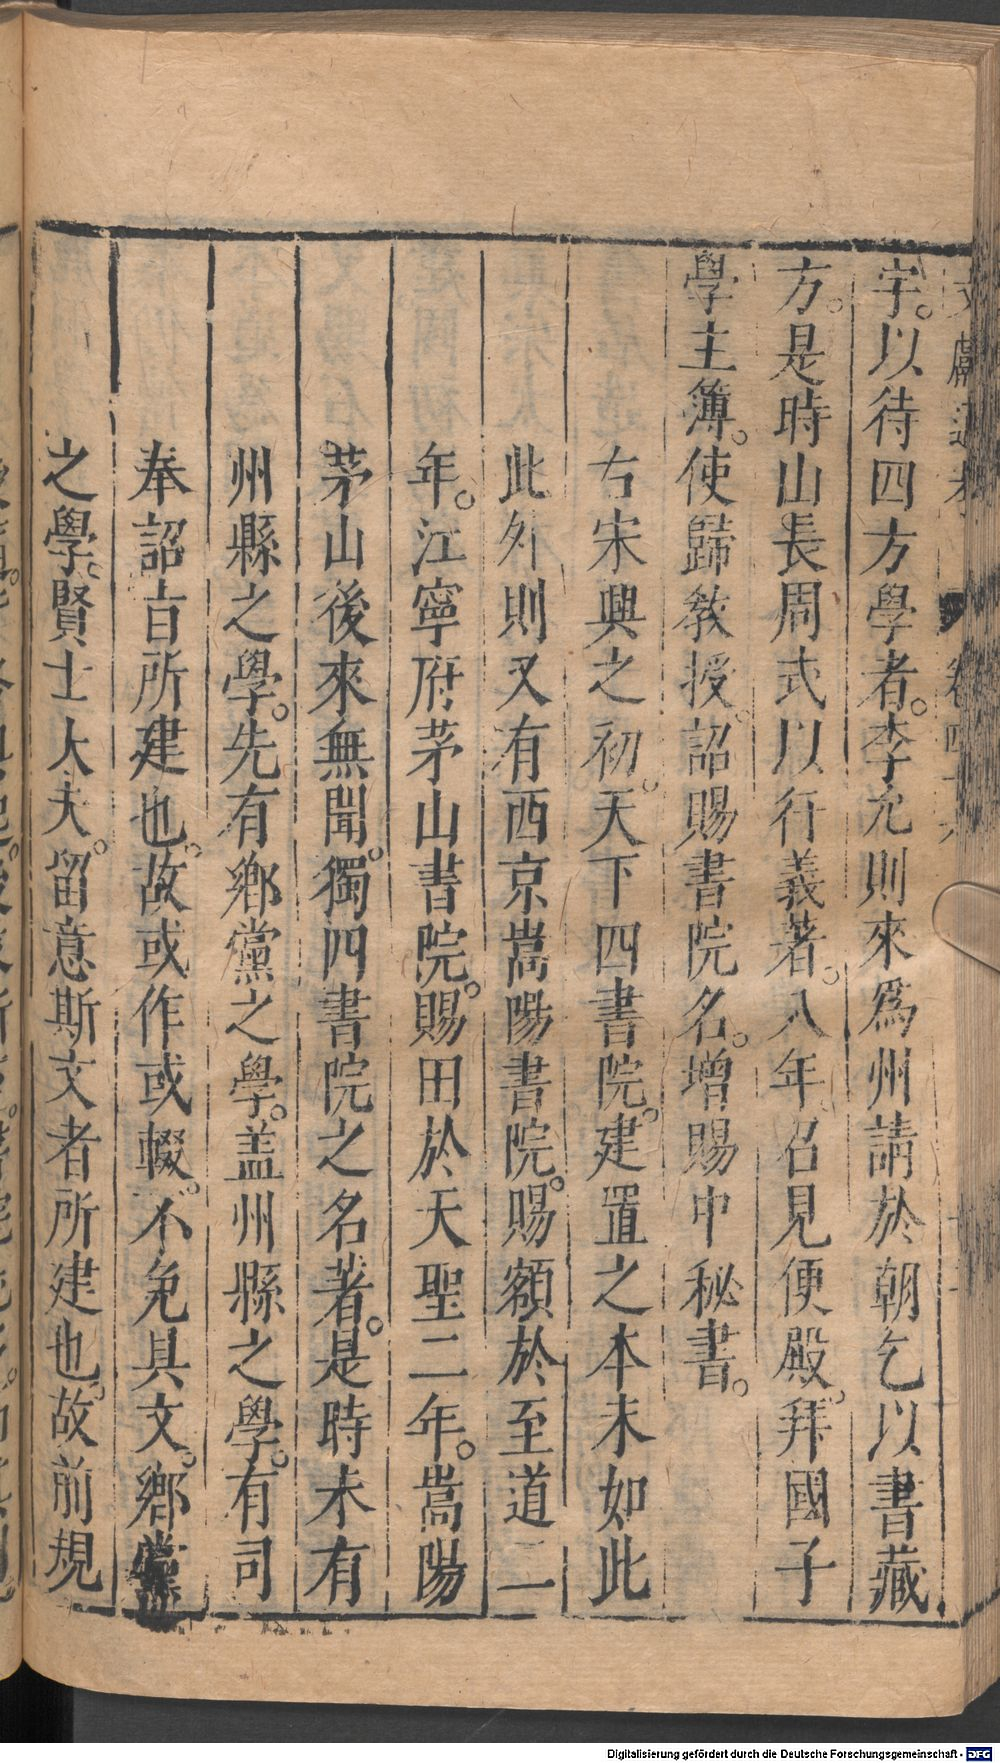 文獻通考 卷四十六
宇。以待四方學者。李允則來爲州請於朝乞以書藏
方。是時山長周式以行義著。八年召見便殿。拜國子
學主簿。使歸教授。詔賜書院名。增賜中秘書。
右宋興之初。天下四書院。建置之本末如此
此外則又有西京嵩陽書院。賜額於至道二
年。江寧府茅山書院。賜田於天聖二年。嵩陽
茅山後來無聞。獨四書院之名著。是時未有
州縣之學。先有鄉黨之學。盖州縣之學。有司
奉詔旨所建也。故或作或輟。不免具文。鄉黨
之學。賢士大夫。留意斯文者所建也。故前規
Digitalisierung gefördert durch die Deutsche Forschungsgemeinschaft - DFG